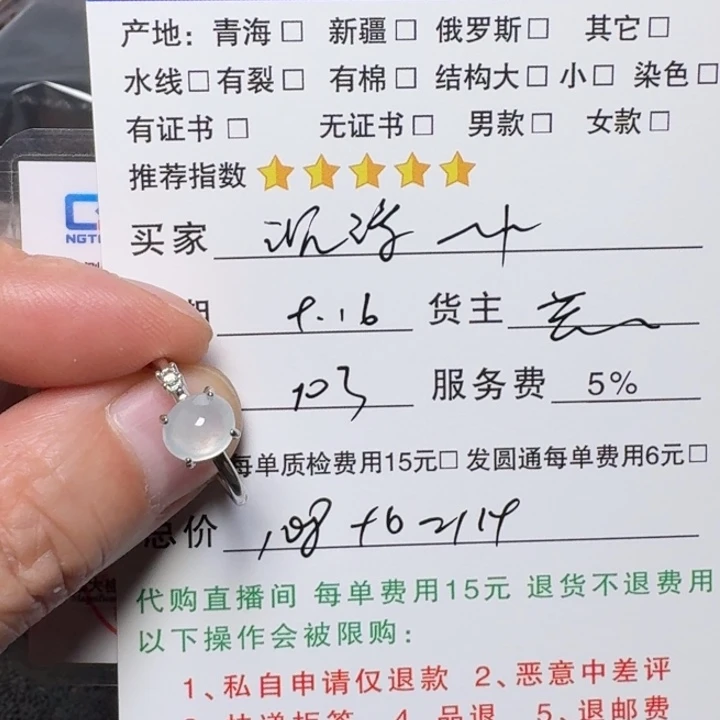 产地: 青海□ 新疆□ 俄罗斯□ 其它□
水线□有裂□ 有棉□ 结构大□ 小□ 染色□
有证书□ 无证书□ 男款□ 女款□
推荐指数
NGT
买家
9.16 货主
103 服务费 5%
每单质检费用15元□ 发圆通每单费用6元□
总价 108+6=114
代购直播间 每单费用15元 退货不退费用
以下操作会被限购:
1、私自申请仅退款 2、恶意中差评
4、品退 5、退邮费